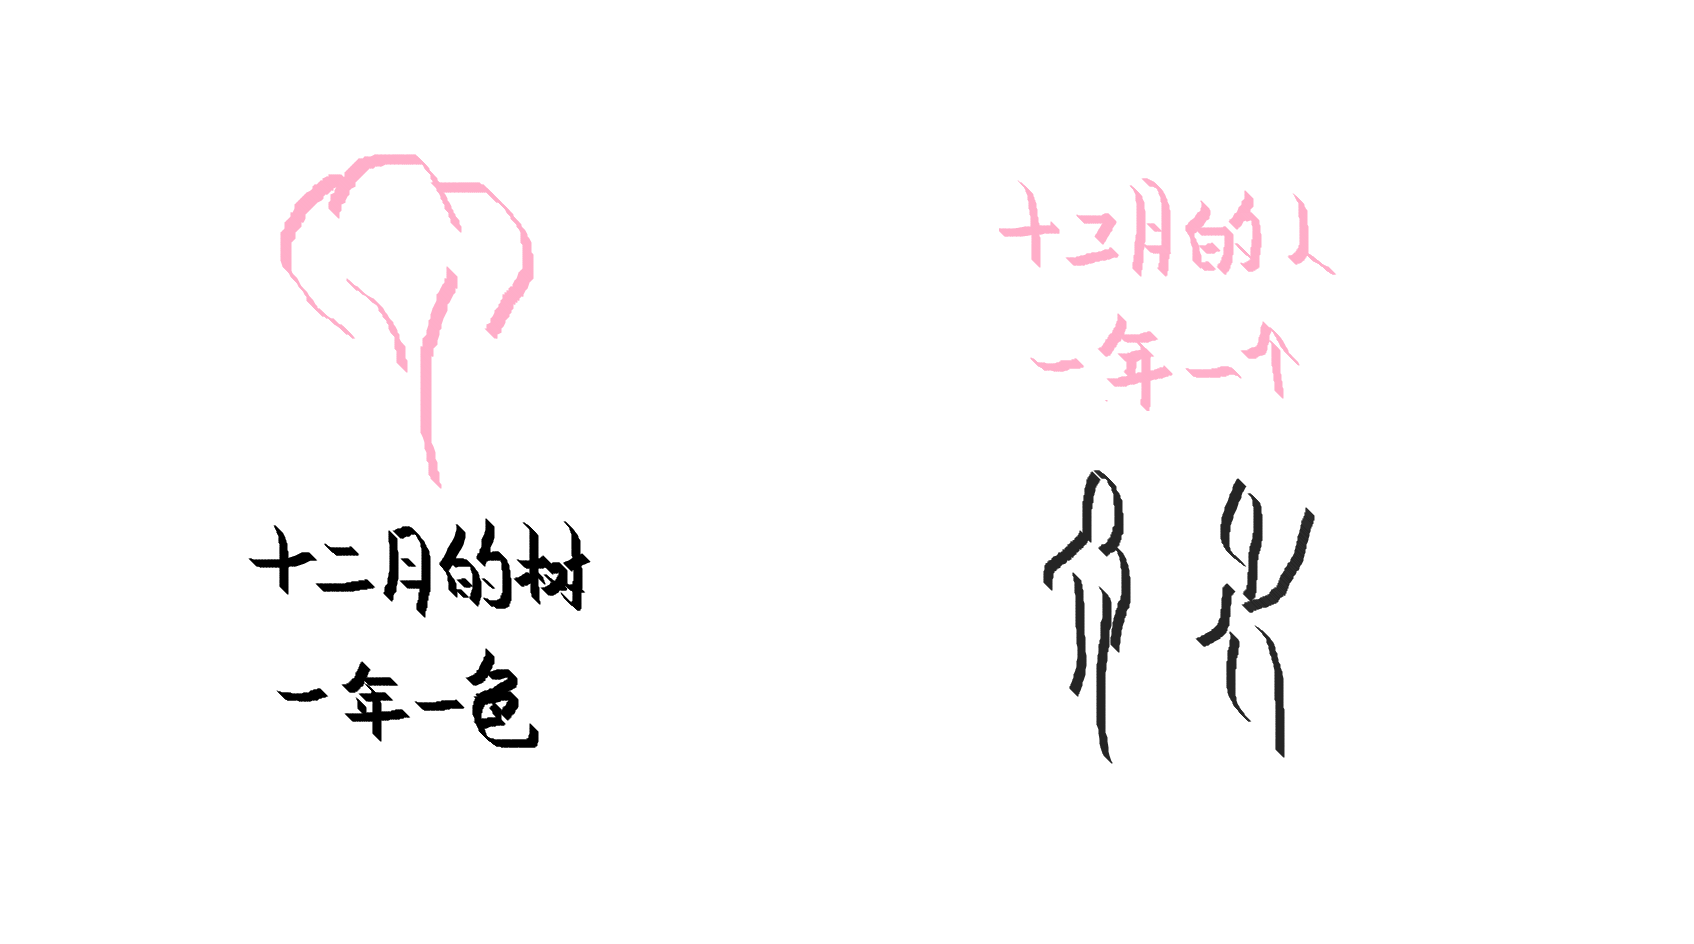 十二月的树
一年一色
十二月的人
一年一个